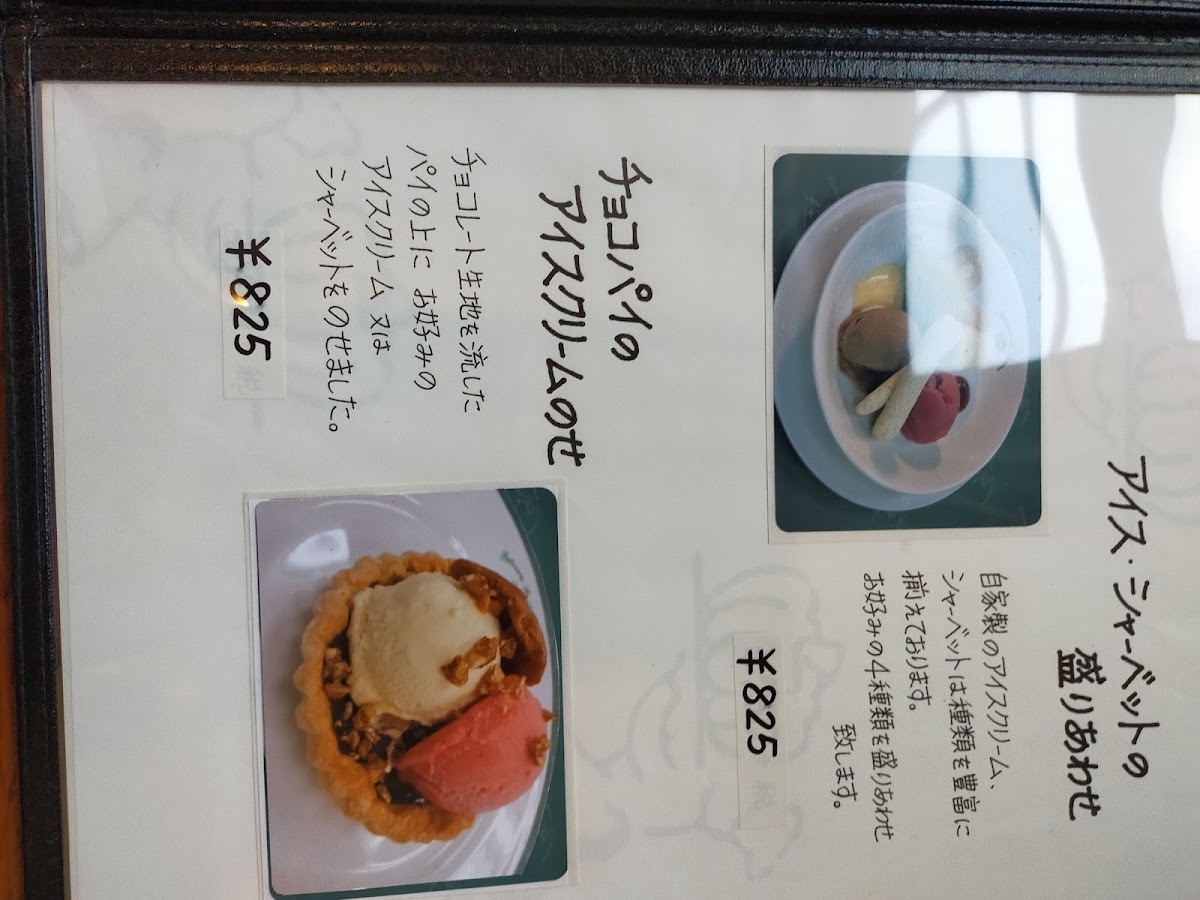 アイス・シャーベットの
盛りあわせ
自家製のアイスクリーム、
シャーベットは種類を豊富に
揃えております。
お好みの4種類を盛りあわせ
致します。
¥825
チョコパイの
アイスクリームのせ
チョコレート生地を流した
パイの上に お好みの
アイスクリーム 又は
シャーベットをのせました。
¥825